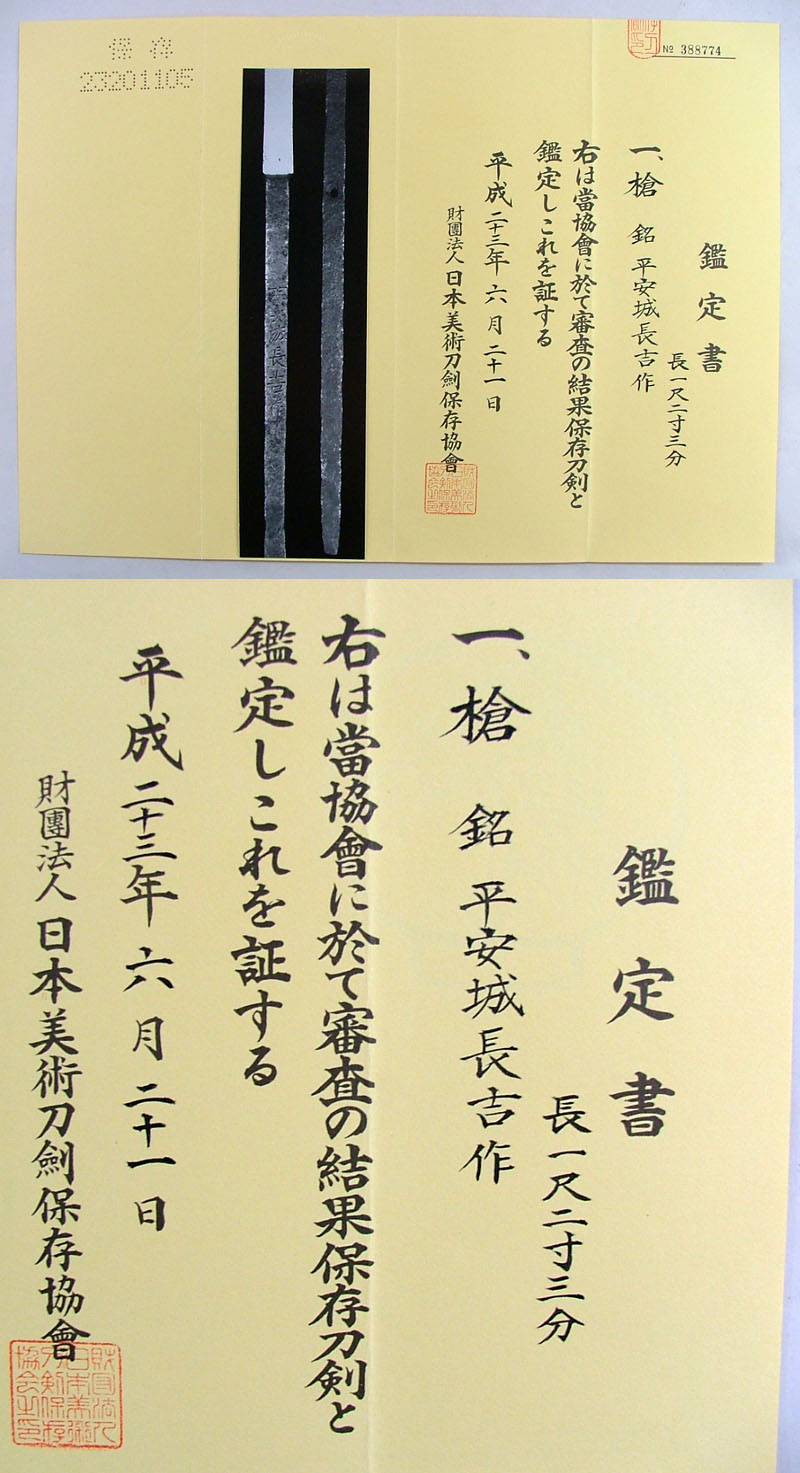 保存
23201105
№ 388774
鑑定書
長一尺二寸三分
一、槍 銘 平安城長吉作
右は當協會に於て審査の結果保存刀剣と
鑑定しこれを証する
平成二十三年六月二十一日
財團法人日本美術刀劍保存協會
平安城長吉作
鑑定書
長一尺二寸三分
一、槍 銘 平安城長吉作
右は當協會に於て審査の結果保存刀剣と
鑑定しこれを証する
平成二十三年六月二十一日
財團法人日本美術刀劍保存協會
財團法人
日本美術
刀劍保存
協会之印